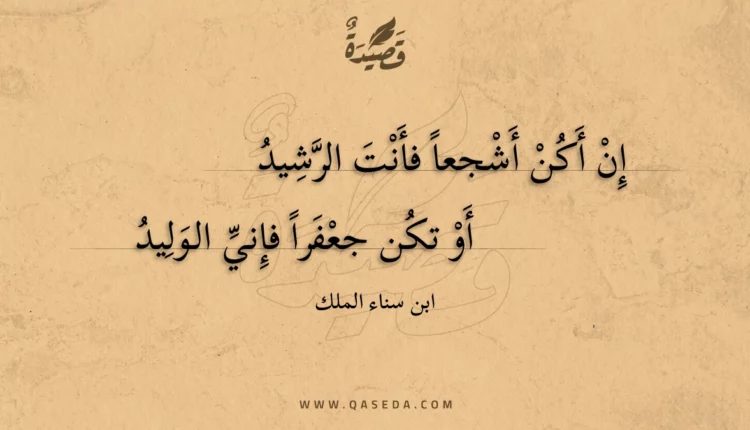 قَصِيْدَةٌ
إِنْ أَكُنْ أَشْجعاً فأَنْتَ الرَّشِيدُ
أَوْ تكُن جعْفَراً فإِنيِّ الوَلِيدُ
ابن سناء الملك
WWW.QASEDA.COM